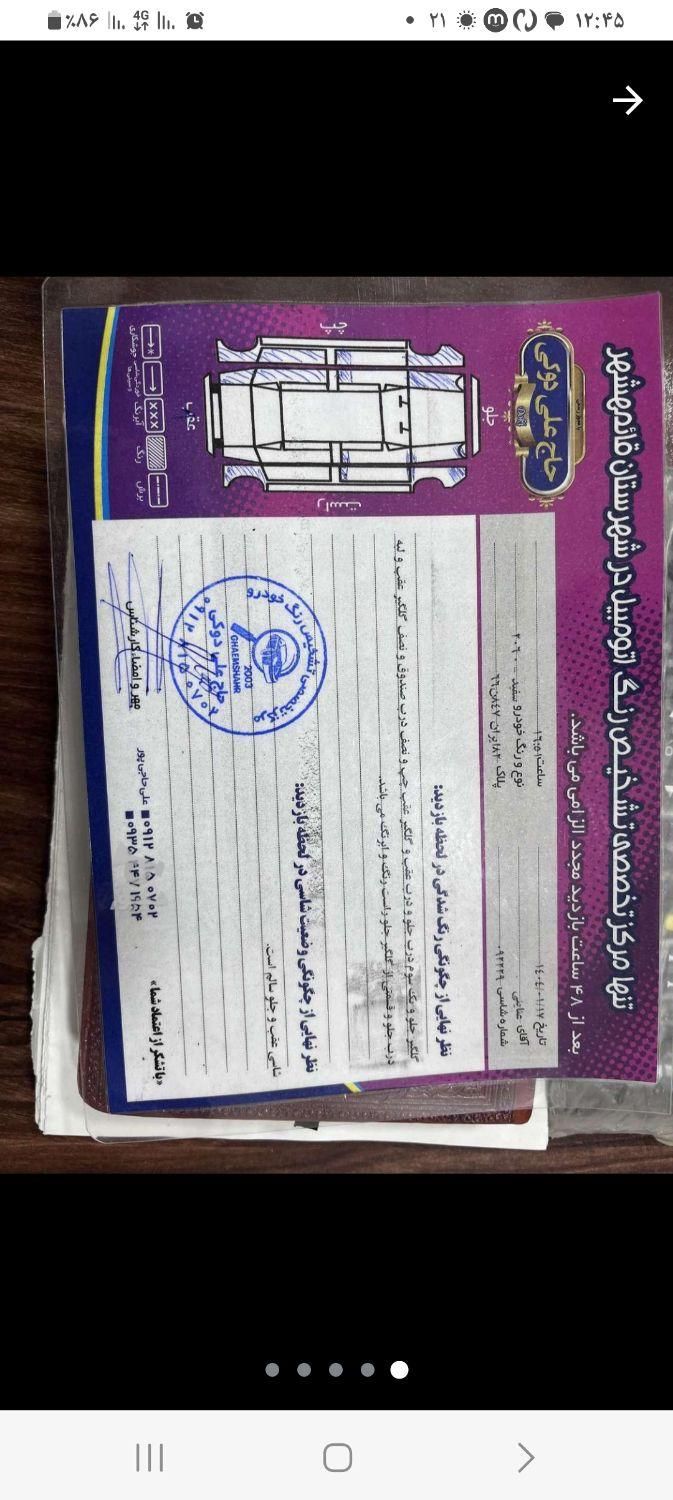 ۱۲:۴۵
۲۱
4G
٪۸۶
تنها مرکز تخصصی تشخیص رنگ اتومبیل در شهرستان قائم‌شهر
بعد از ۴۸ ساعت بازدید مجدد الزامی می باشد.
حاج علی دوکی
جلو
چپ
راست
عقب
برش
رنگ
آبرنگ
XXX
جوشکاری
تاریخ ۱۴۰۴/۰۱/۱۷
ساعت ۱۶:۵۱
آقای عنایتی
نوع و رنگ خودرو سفید
شماره شاسی ۰۹۲۲۲۹
نظر نهایی از چگونگی رنگ شدگی در لحظه بازدید:
گلگیر جلو و یک سوم درب جلو و درب عقب و گلگیر عقب چپ و نصف درب صندوق و نصف گلگیر عقب و لبه
درب جلو و قسمتی از گلگیر جلو راست رنگ و آبرنگ می باشد.
نظر نهایی از چگونگی وضعیت شاسی در لحظه بازدید:
شاسی عقب و جلو سالم است.
مرکز تخصصی تشخیص رنگ خودرو
2003
GHAEMSHAHR
حاج علی دوکی
مهر و امضاء کارشناس
علی حاجی پور
«با تشکر از اعتماد شما»